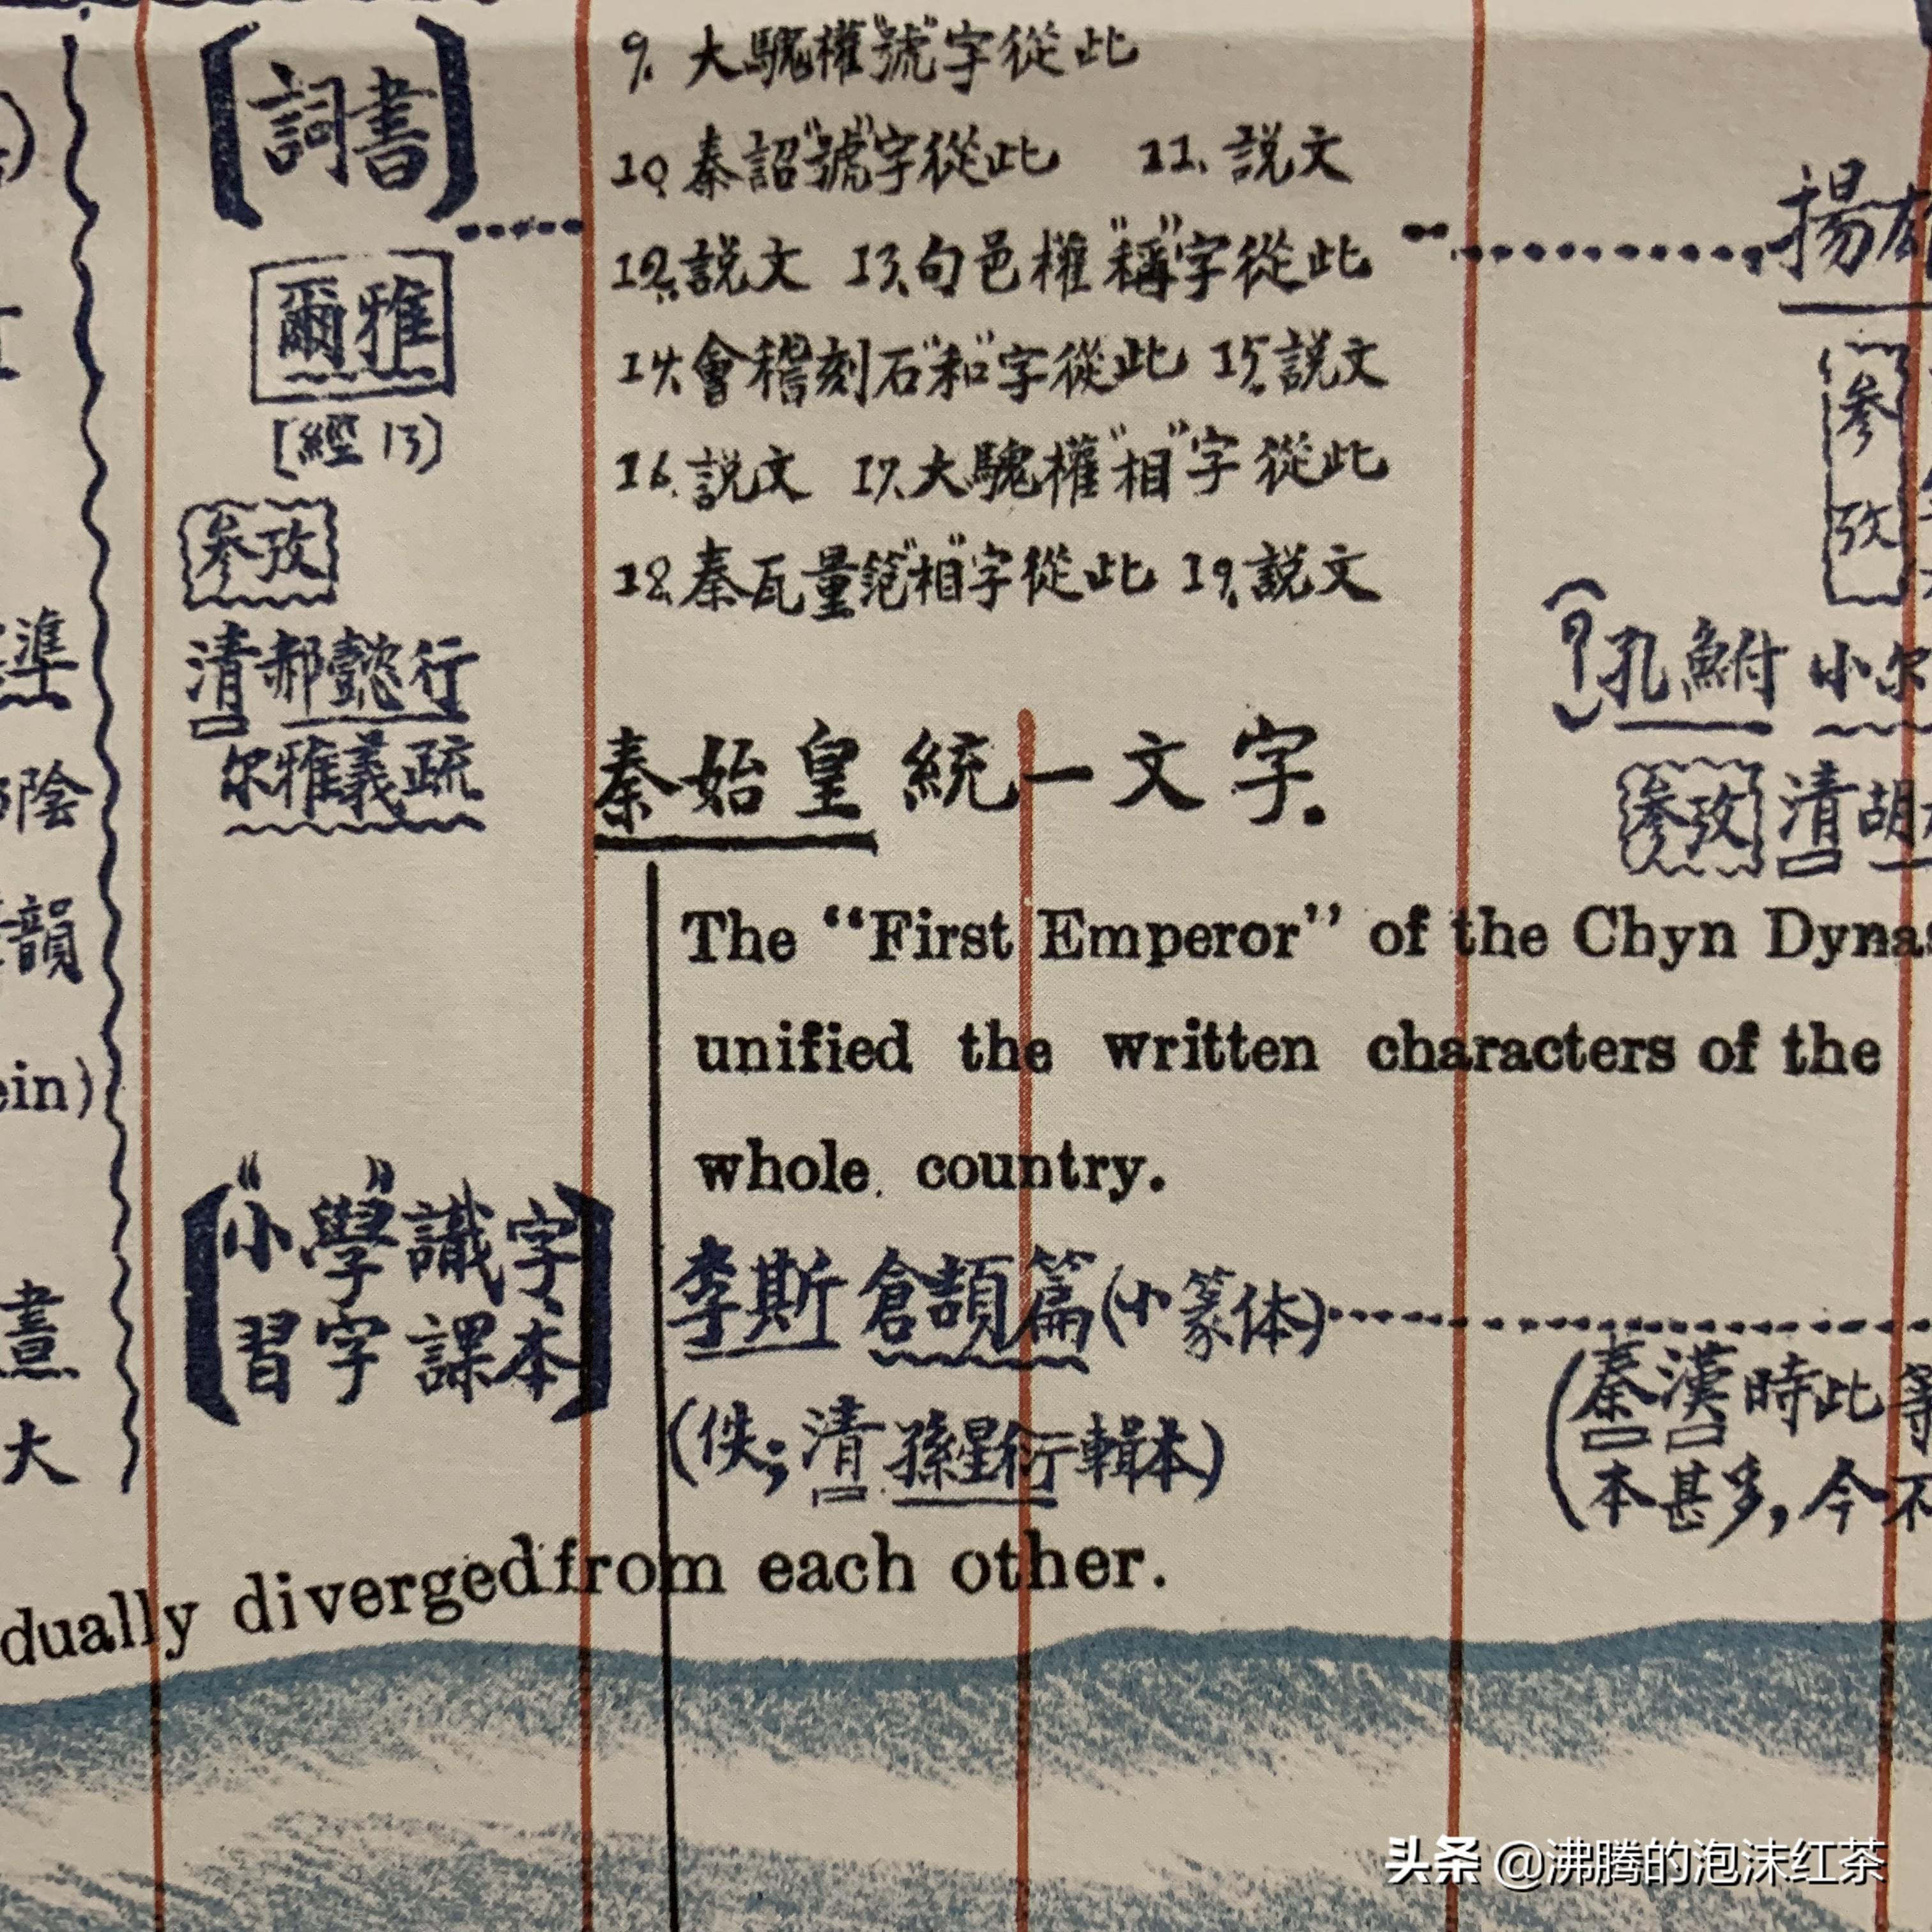 [詞書]
爾雅
[經13]
參攷
清郝懿行
尔雅義疏
["小學"識字
習字課本]
9. 大騩權"號"字從此
10. 秦詔"號"字從此 11. 説文
12. 説文 13. 旬邑權"稱"字從此
14. 會稽刻石"和"字從此 15. 説文
16. 説文 17. 大騩權"相"字從此
18. 秦瓦量範"相"字從此 19. 説文
秦始皇統一文字.
The “First Emperor” of the Chyn
unified the written characters of the
whole country.
李斯 倉頡篇(小篆体)
(佚;清 孫星衍輯本)
diverged from each other.
揚雄
參攷
(?孔鮒 小尔
參攷 清胡
(秦漢時此等
本甚多,今不
準
陰
韻
ein)
大
头条 @沸腾的泡沫红茶